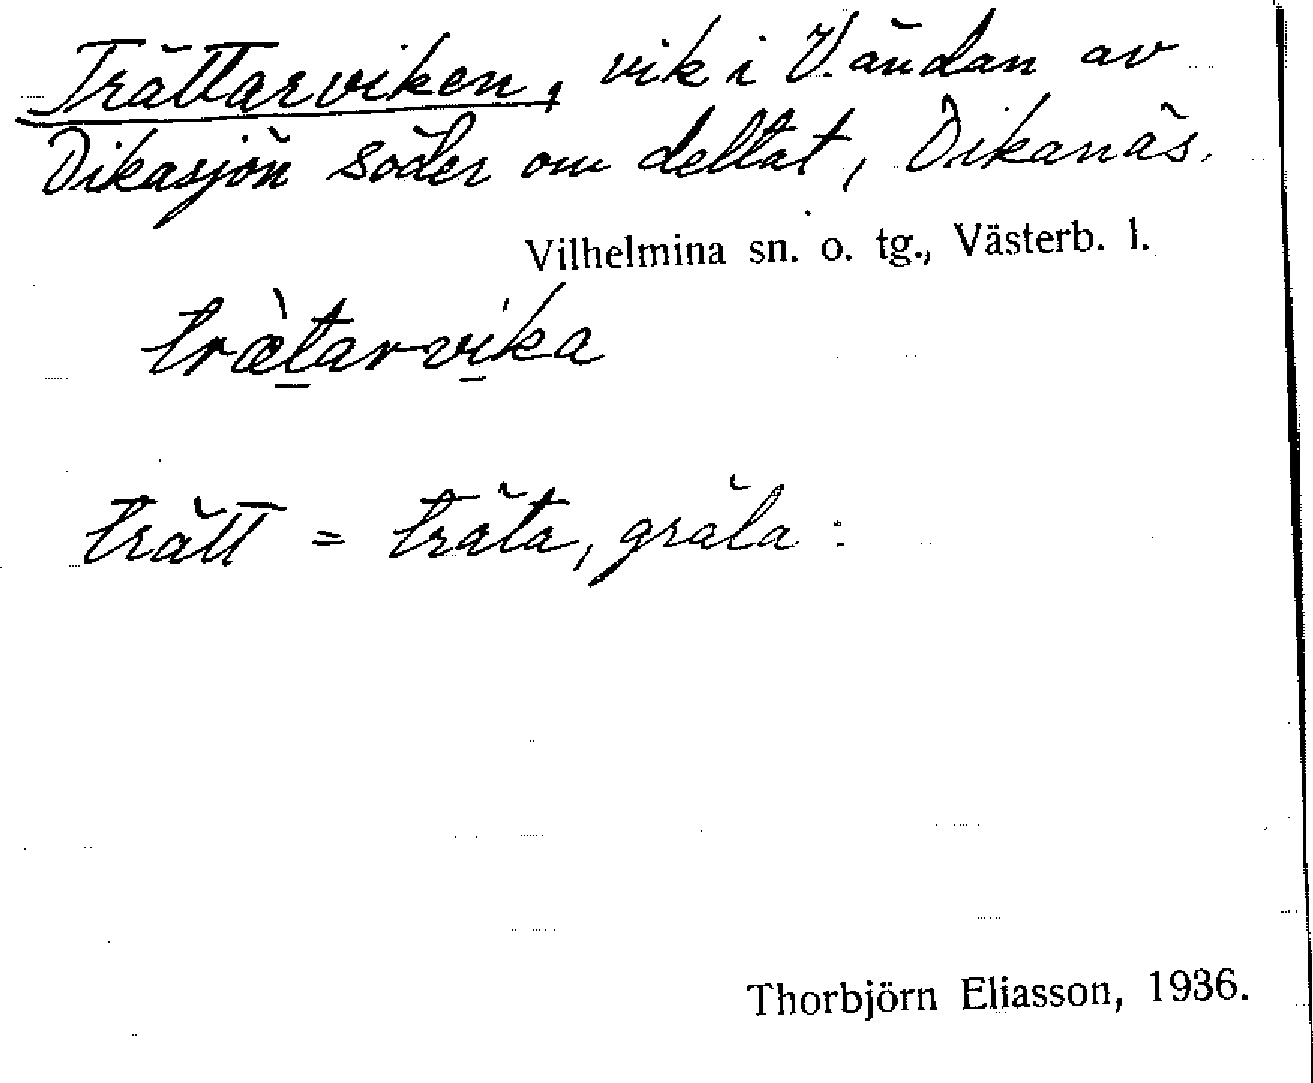 Trättarviken, vik i V. ändan av
Dikasjön söder om deltat, Dikanäs.
Vilhelmina sn. o. tg., Västerb. l.
træ̀tarvika
trätt = träta, gräla:
Thorbjörn Eliasson, 1936.